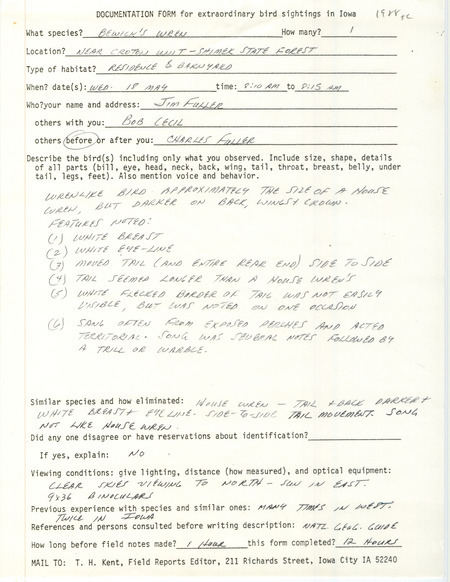 DOCUMENTATION FORM for extraordinary bird sightings in Iowa
What species? BEWICK'S WREN How many? 1
Location? NEAR CROTON UNIT - SHIMEK STATE FOREST
Type of habitat? RESIDENCE & BARNYARD
When? date(s): WED. 18 MAY time: 8:10 AM to 8:15 AM
Who?your name and address: JIM FULLER
others with you: BOB CECIL
others before or after you: CHARLES FULLER
Describe the bird(s) including only what you observed. Include size, shape, details
of all parts (bill, eye, head, neck, back, wing, tail, throat, breast, belly, under
tail, legs, feet). Also mention voice and behavior.
WRENLIKE BIRD. APPROXIMATELY THE SIZE OF A HOUSE
WREN, BUT DARKER ON BACK, WINGS & CROWN.
FEATURES NOTED:
(1) WHITE BREAST
(2) WHITE EYE-LINE
(3) MOVED TAIL (AND ENTIRE REAR END) SIDE TO SIDE
(4) TAIL SEEMED LONGER THAN A HOUSE WREN'S
(5) WHITE FLECKED BORDER OF TAIL WAS NOT EASILY
VISIBLE, BUT WAS NOTED ON ONE OCCASION
(6) SANG OFTEN FROM EXPOSED PERCHES AND ACTED
TERRITORIAL. SONG WAS SEVERAL NOTES FOLLOWED BY
A TRILL OR WARBLE.
Similar species and how eliminated: HOUSE WREN - TAIL & BACK DARKER &
WHITE BREAST & EYE LINE. SIDE-TO-SIDE TAIL MOVEMENT. SONG
NOT LIKE HOUSE WREN.
Did any one disagree or have reservations about identification?
If yes, explain: NO
Viewing conditions: give lighting, distance (how measured), and optical equipment:
CLEAR SKIES VIEWING TO NORTH - SUN IN EAST.
9x36 BINOCULARS
Previous experience with species and similar ones: MANY TIMES IN WEST.
TWICE IN IOWA
References and persons consulted before writing description: NATL GEOG. GUIDE
How long before field notes made? 1 HOUR this form completed? 12 HOURS
MAIL TO: T. H. Kent, Field Reports Editor, 211 Richards Street, Iowa City IA 52240